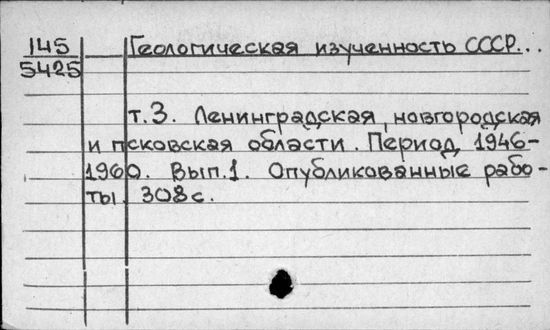 145 Геологическая изученность СССР...
5425
т.3. Ленинградская, новгородская
и псковская области. Период 1946-
1960. Вып.1. Опубликованные рабо-
ты. 308 с.